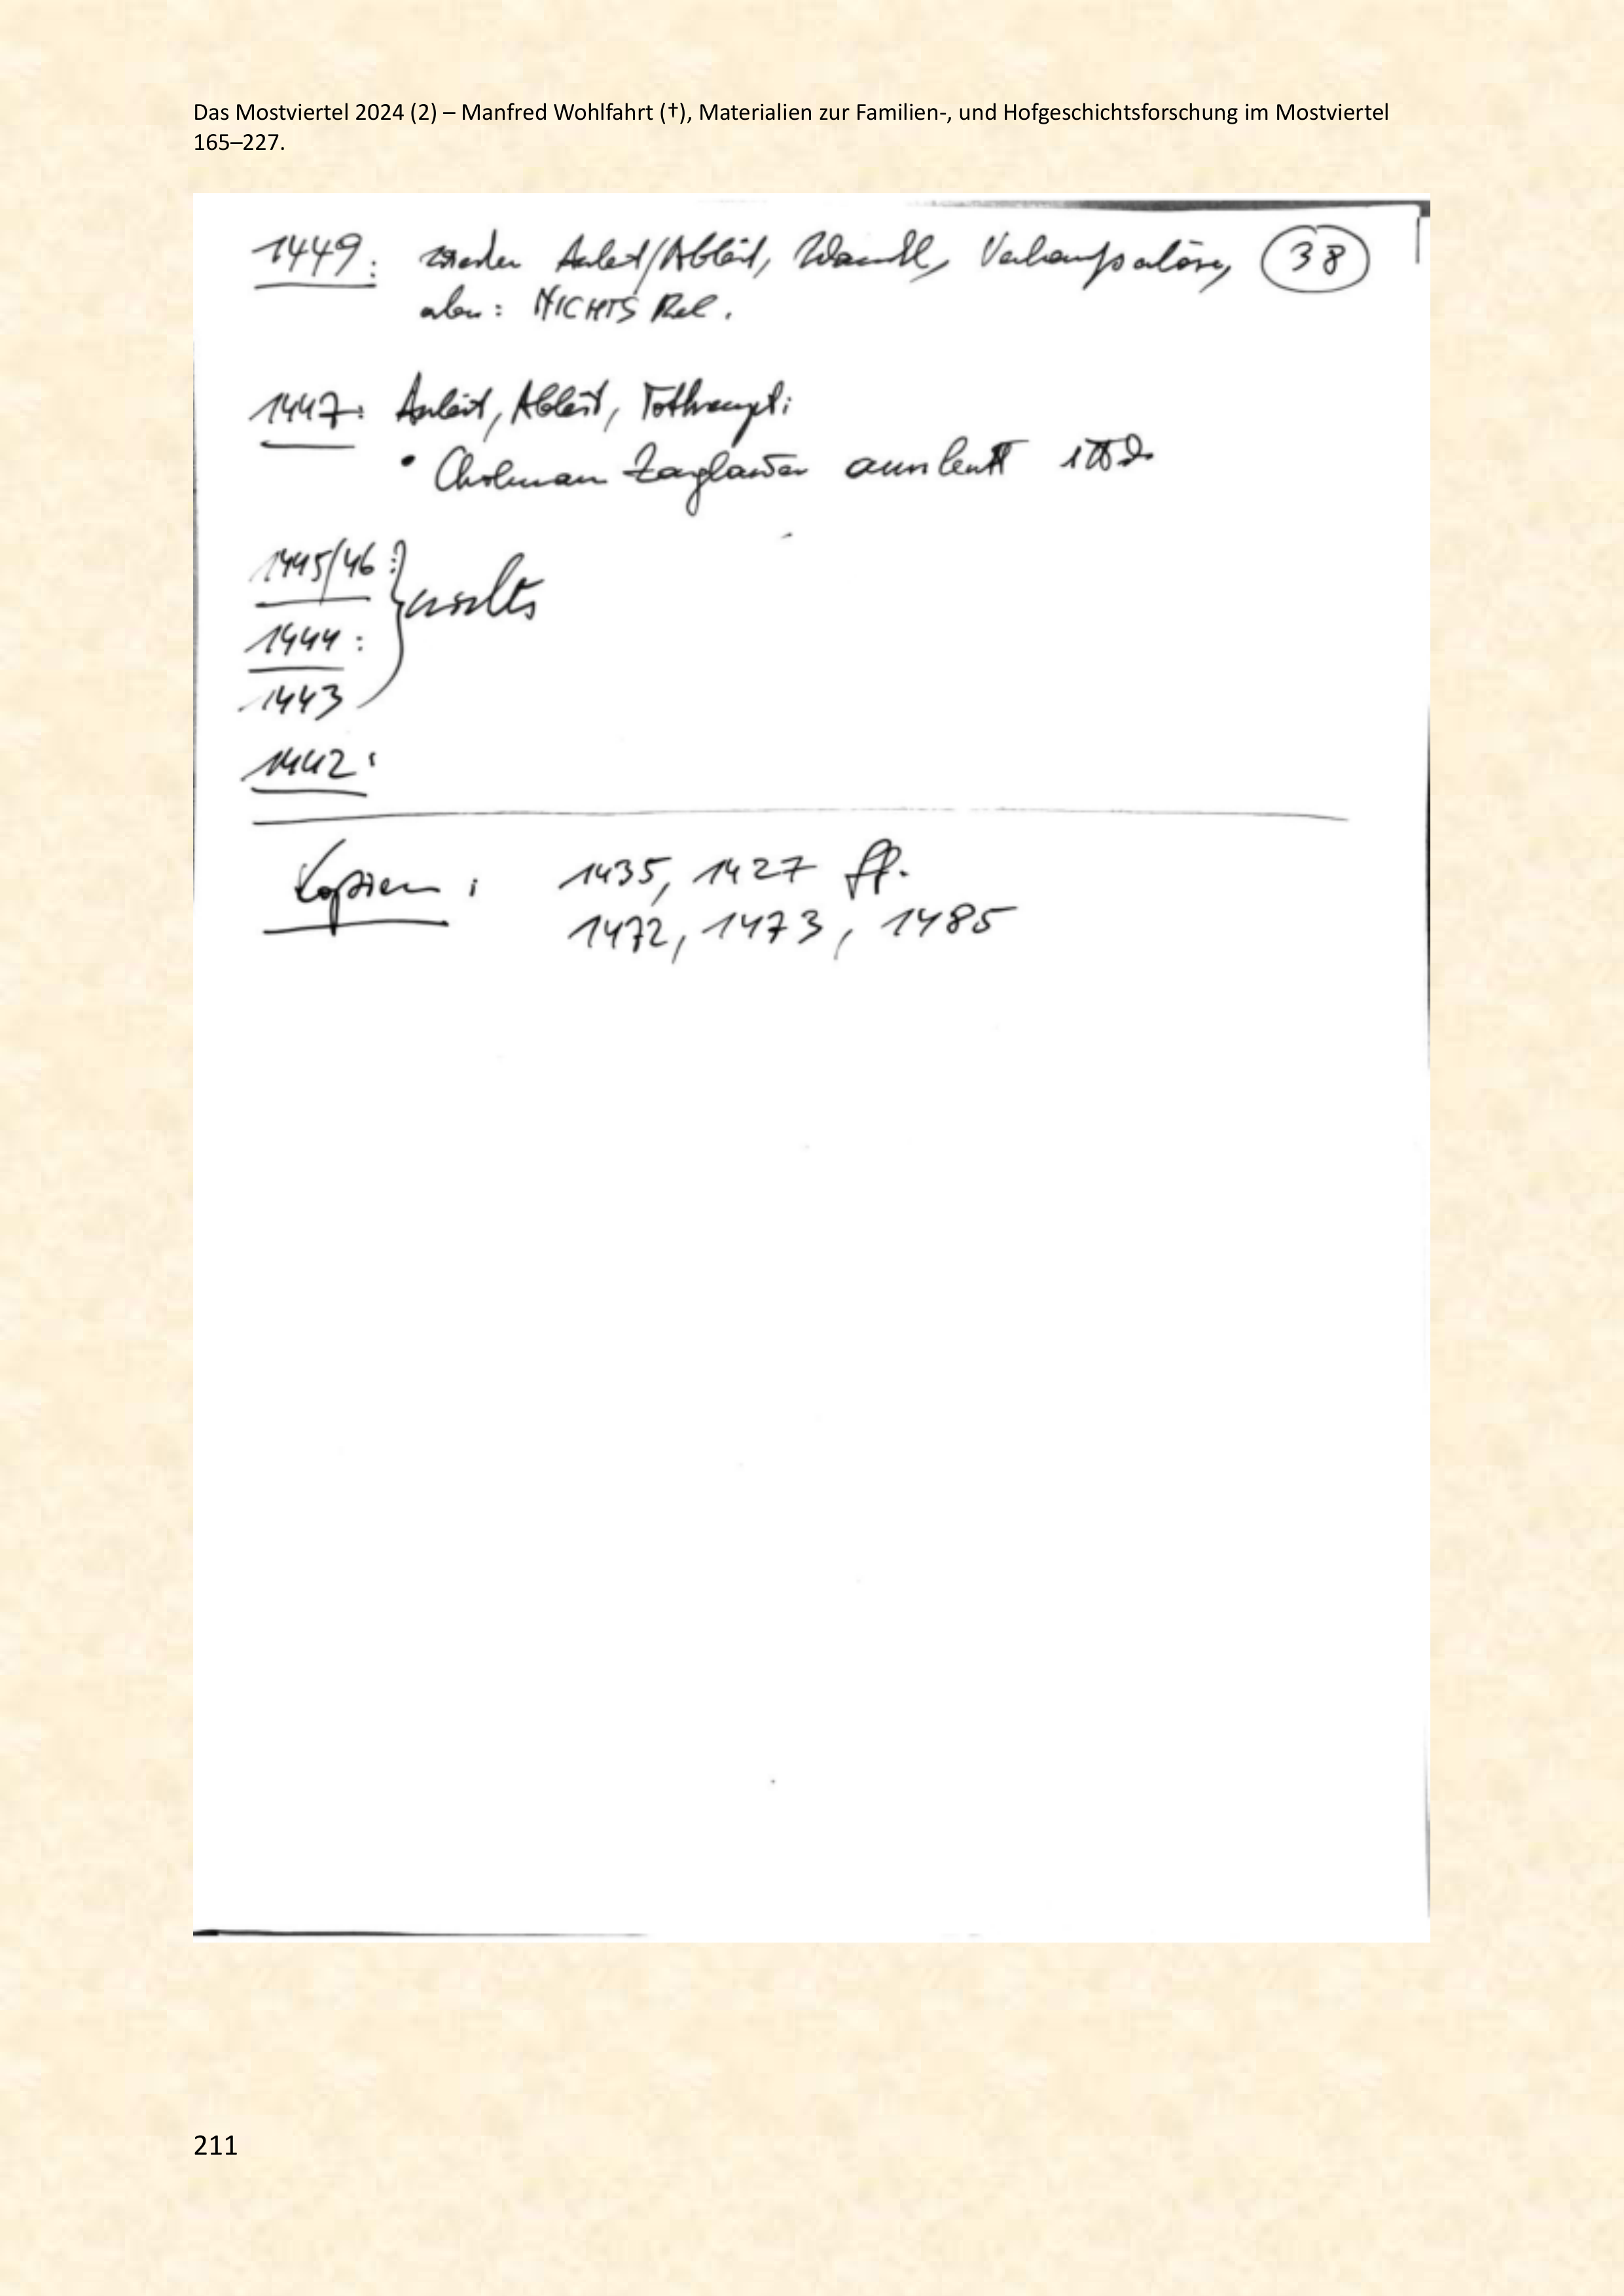 Das Mostviertel 2024 (2) – Manfred Wohlfahrt (†), Materialien zur Familien-, und Hofgeschichtsforschung im Mostviertel
165–227.
1449: wieder Anleit/Ableit, Wandl, 38
aber: NICHTS Rel.
1447: Anleit, Ableit,
• Cholman annleutt 1
1445/46: nichts
1444:
1443
1442:
Kopien: 1435, 1427 ff.
1472, 1473, 1485
211